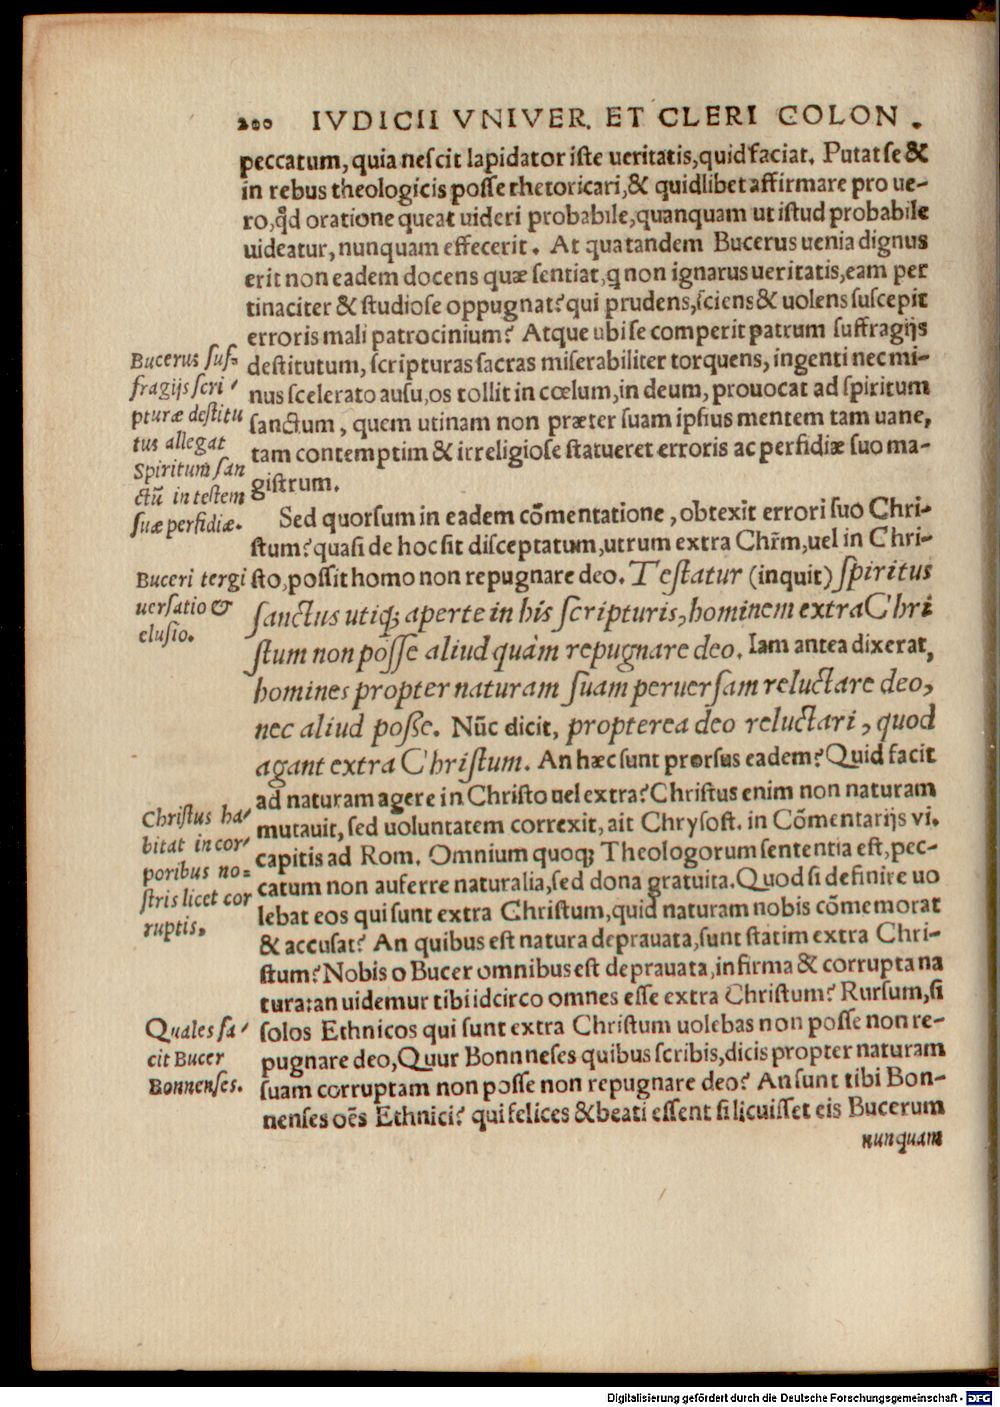 200 IVDICII VNIVER. ET CLERI COLON.
peccatum, quia nescit lapidator iste ueritatis, quid faciat. Putat se &
in rebus theologicis posse rhetoricari, & quidlibet affirmare pro ue-
ro, qđ oratione queat uideri probabile, quanquam ut istud probabile
uideatur, nunquam effecerit. At qua tandem Bucerus uenia dignus
erit non eadem docens quæ sentiat, q non ignarus ueritatis, eam per
tinaciter & studiose oppugnat? qui prudens, sciens & uolens suscepit
erroris mali patrocinium? Atque ubi se comperit patrum suffragijs
destitutum, scripturas sacras miserabiliter torquens, ingenti nec mi-
nus scelerato ausu, os tollit in cœlum, in deum, prouocat ad spiritum
sanctum, quem utinam non præter suam ipsius mentem tam uane,
tam contemptim & irreligiose statueret erroris ac perfidiæ suo ma-
gistrum.
Bucerus suf-
fragijs scri
pturæ destitu
tus allegat
Spiritum san
ctū in testem
suæ perfidiæ.
Sed quorsum in eadem cōmentatione, obtexit errori suo Chri-
stum? quasi de hoc sit disceptatum, utrum extra Chr̄m, uel in Chri-
sto, possit homo non repugnare deo. Testatur (inquit) spiritus
sanctus utiq; aperte in his scripturis, hominem extra Chri
stum non posse aliud quàm repugnare deo. Iam antea dixerat,
homines propter naturam suam peruersam reluctare deo,
nec aliud posse. Nūc dicit, propterea deo reluctari, quod
agant extra Christum. An hæc sunt prorsus eadem? Quid facit
ad naturam agere in Christo uel extra? Christus enim non naturam
mutauit, sed uoluntatem correxit, ait Chrysost. in Cōmentarijs vi.
capitis ad Rom. Omnium quoq; Theologorum sententia est, pec-
catum non auferre naturalia, sed dona gratuita. Quod si definire uo
lebat eos qui sunt extra Christum, quid naturam nobis cōmemorat
& accusat? An quibus est natura deprauata, sunt statim extra Chri-
stum? Nobis o Bucer omnibus est deprauata, infirma & corrupta na
tura: an uidemur tibi idcirco omnes esse extra Christum? Rursum, si
solos Ethnicos qui sunt extra Christum uolebas non posse non re-
pugnare deo, Quur Bonnneses quibus scribis, dicis propter naturam
suam corruptam non posse non repugnare deo? An sunt tibi Bon-
nenses oēs Ethnici? qui felices & beati essent si licuisset eis Bucerum
Buceri tergi
uersatio &
elusio.
Christus ha-
bitat in cor-
poribus no-
stris licet cor
ruptis.
Quales fa-
cit Bucer
Bonnenses.
nunquam
Digitalisierung gefördert durch die Deutsche Forschungsgemeinschaft - DFG